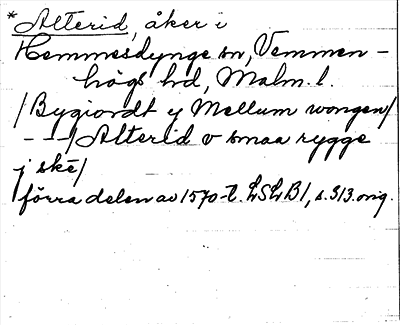 *Alterid, åker i
Hemmesdynge sn, Vemmen-
högs hd, Malm. l.
/Bygiordt y Mellum wongen/
- - -/Alterid v smaa rygge
j skè/
förra delen av 1570-t. LSLB1, s. 313. orig.